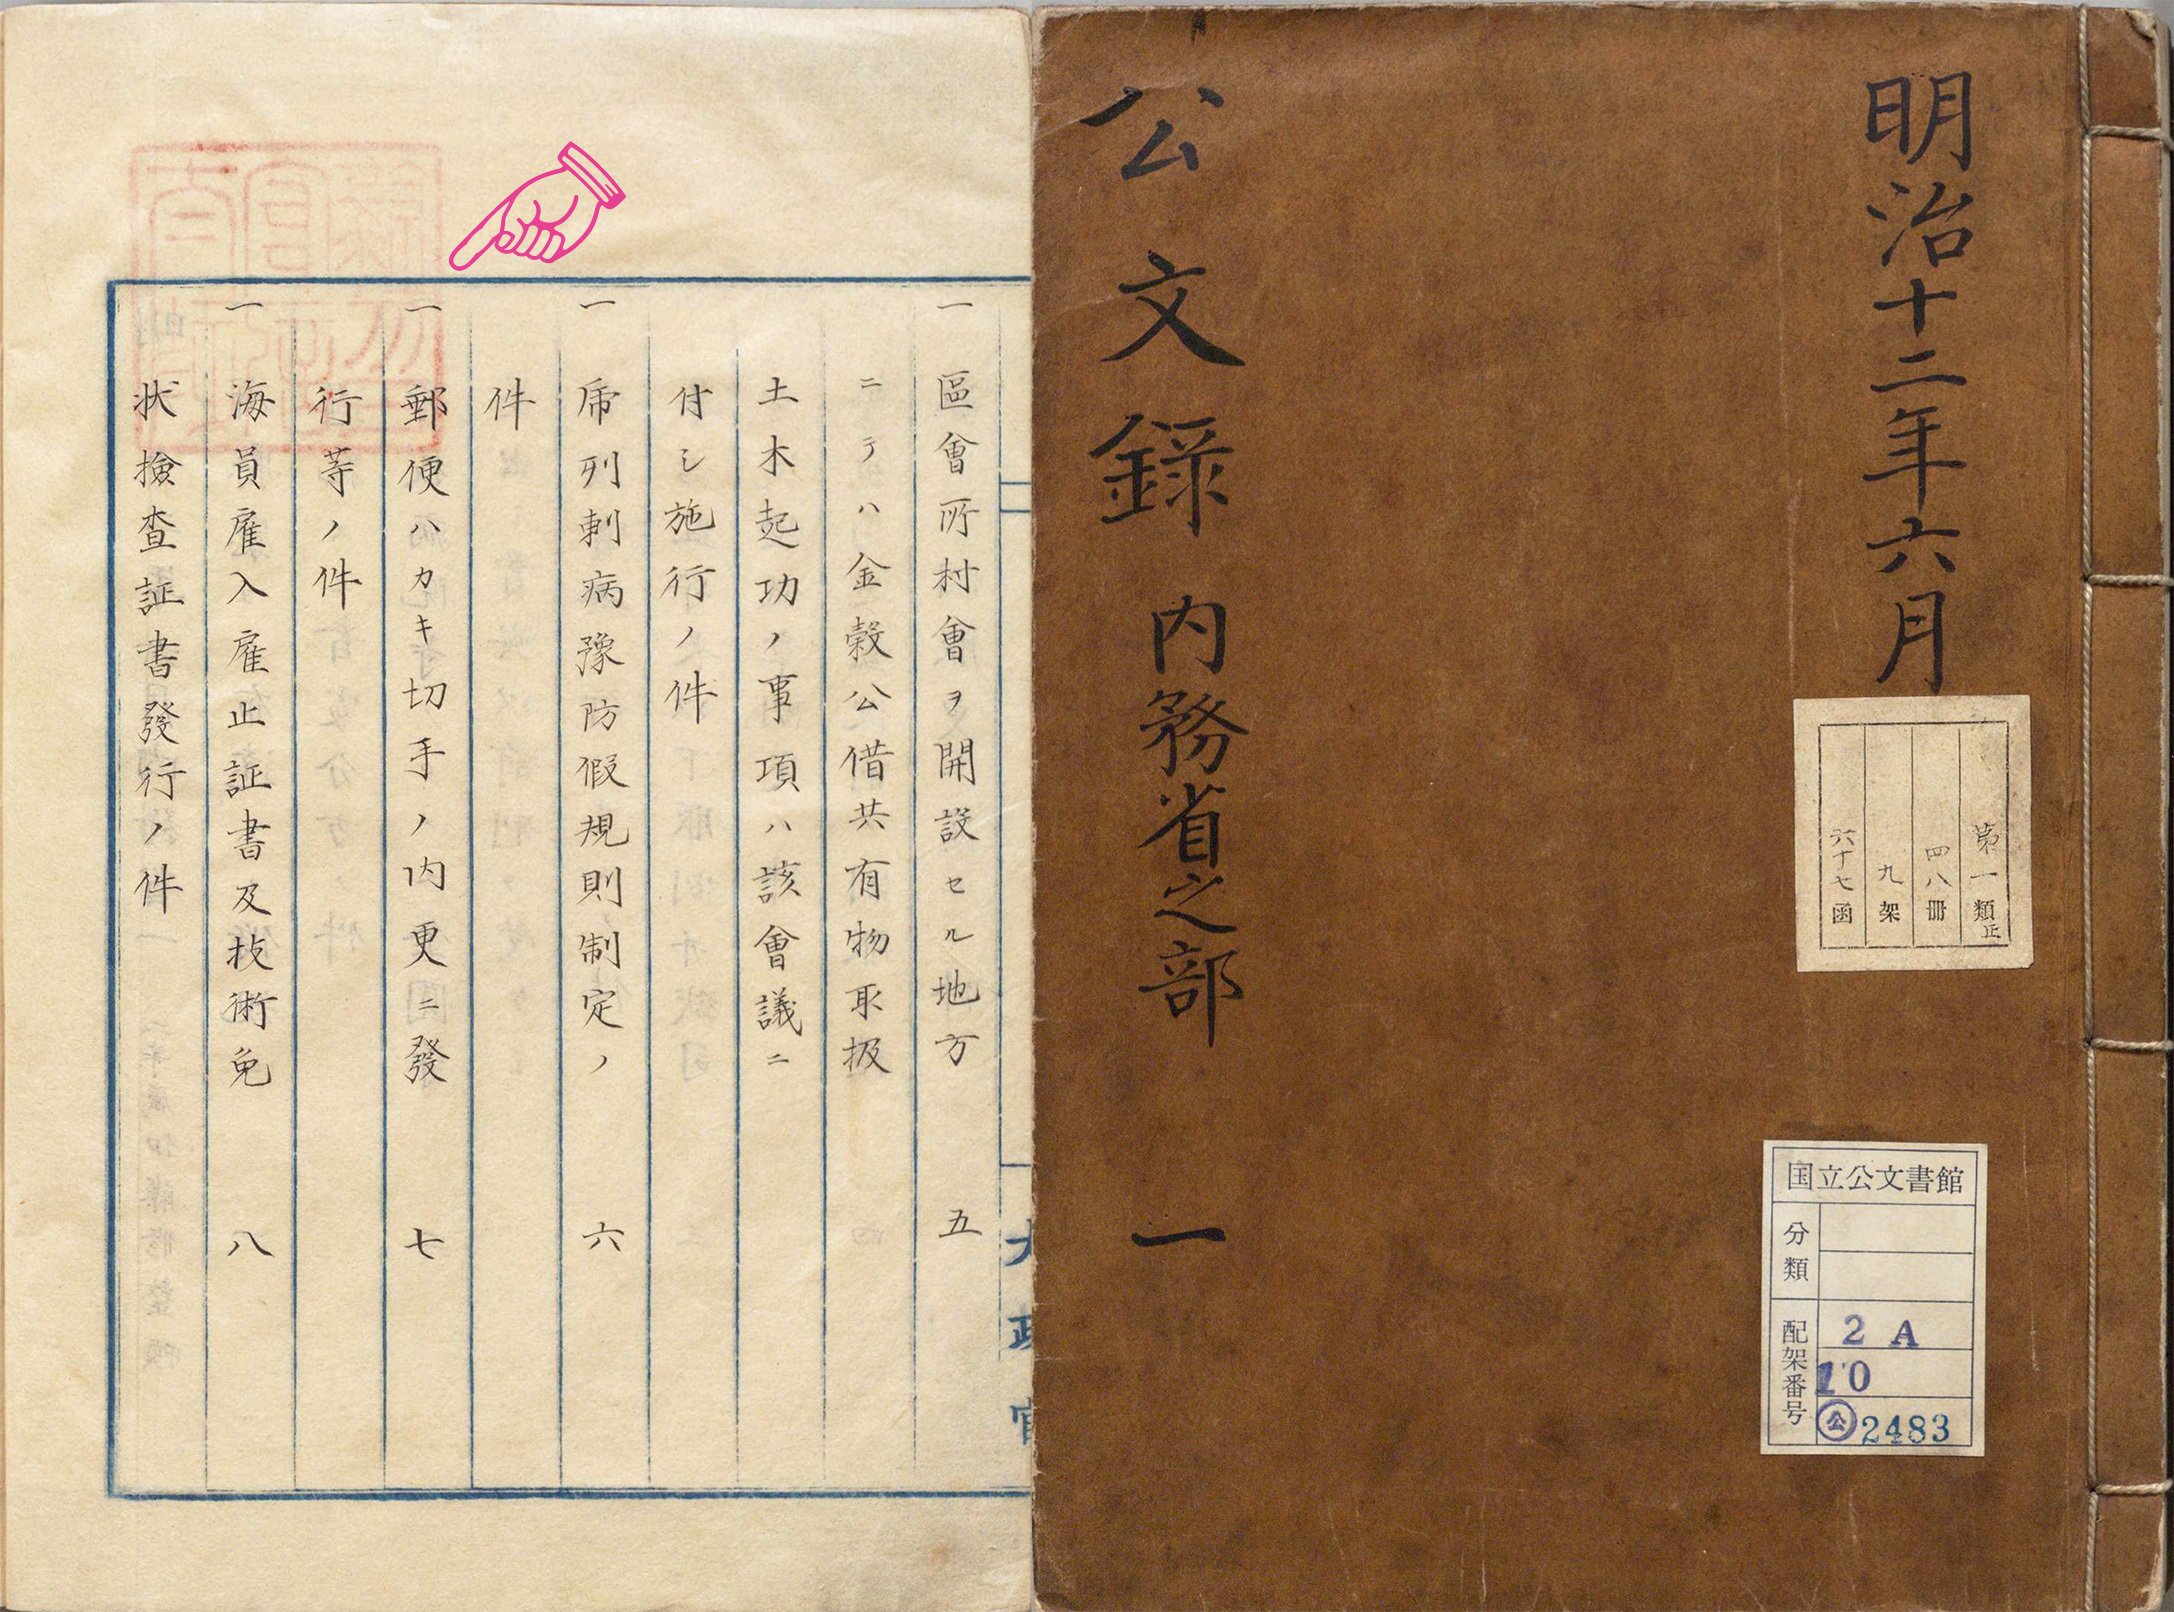 明治十二年六月
公文錄 内務省之部 一
第一類正
四八冊
九架
六十七函
国立公文書館
分類
配架番号
2 A
10
公 2483
一 區會所村會ヲ開設セル地方 五
ニテハ金穀公借共有物取扱
土木起功ノ事項ハ該會議ニ
付シ施行ノ件
一 虎列剌病豫防假規則制定ノ 六
件
一 郵便ハカキ切手ノ内更ニ發 七
行等ノ件
一 海員雇入雇止証書及技術免 八
状撿查証書發行ノ件